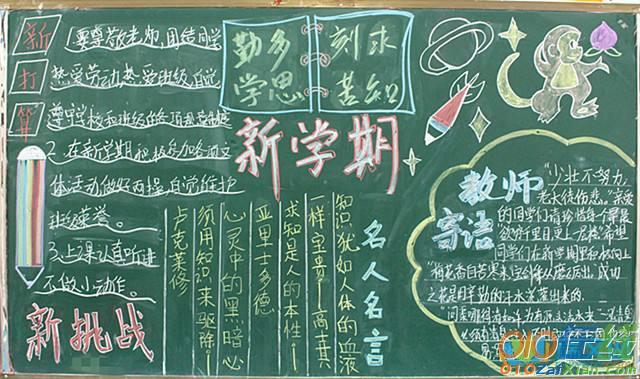 新
打
算
1.要尊敬老师,团结同学
热爱劳动热爱班级自觉
遵守学校和班级的各项规章制度
2.在新学期积极参加各项文
体活动做好两操自觉维护
班级荣誉。
3.上课认真听讲
不做小动作。
新挑战
勤多
学思
刻求
苦知
新学期
名人名言
知识犹如人体的血液
一样宝贵——高士其
求知是人的本性——
亚里士多德
心灵中的黑暗心
须用知识来驱除——
卢克莱修
教师
寄语
"少壮不努力,
老大徒伤悲。"亲爱
的同学们请珍惜每个
"欲穷千里目更上一层楼"希望
同学们在新学期里
"梅花香自苦寒来,宝剑锋从磨砺出。成功
之花是用辛勤的汗水浇灌出来的。
"问渠哪得清如许为有源头活水来"
010ZaiXian.Com